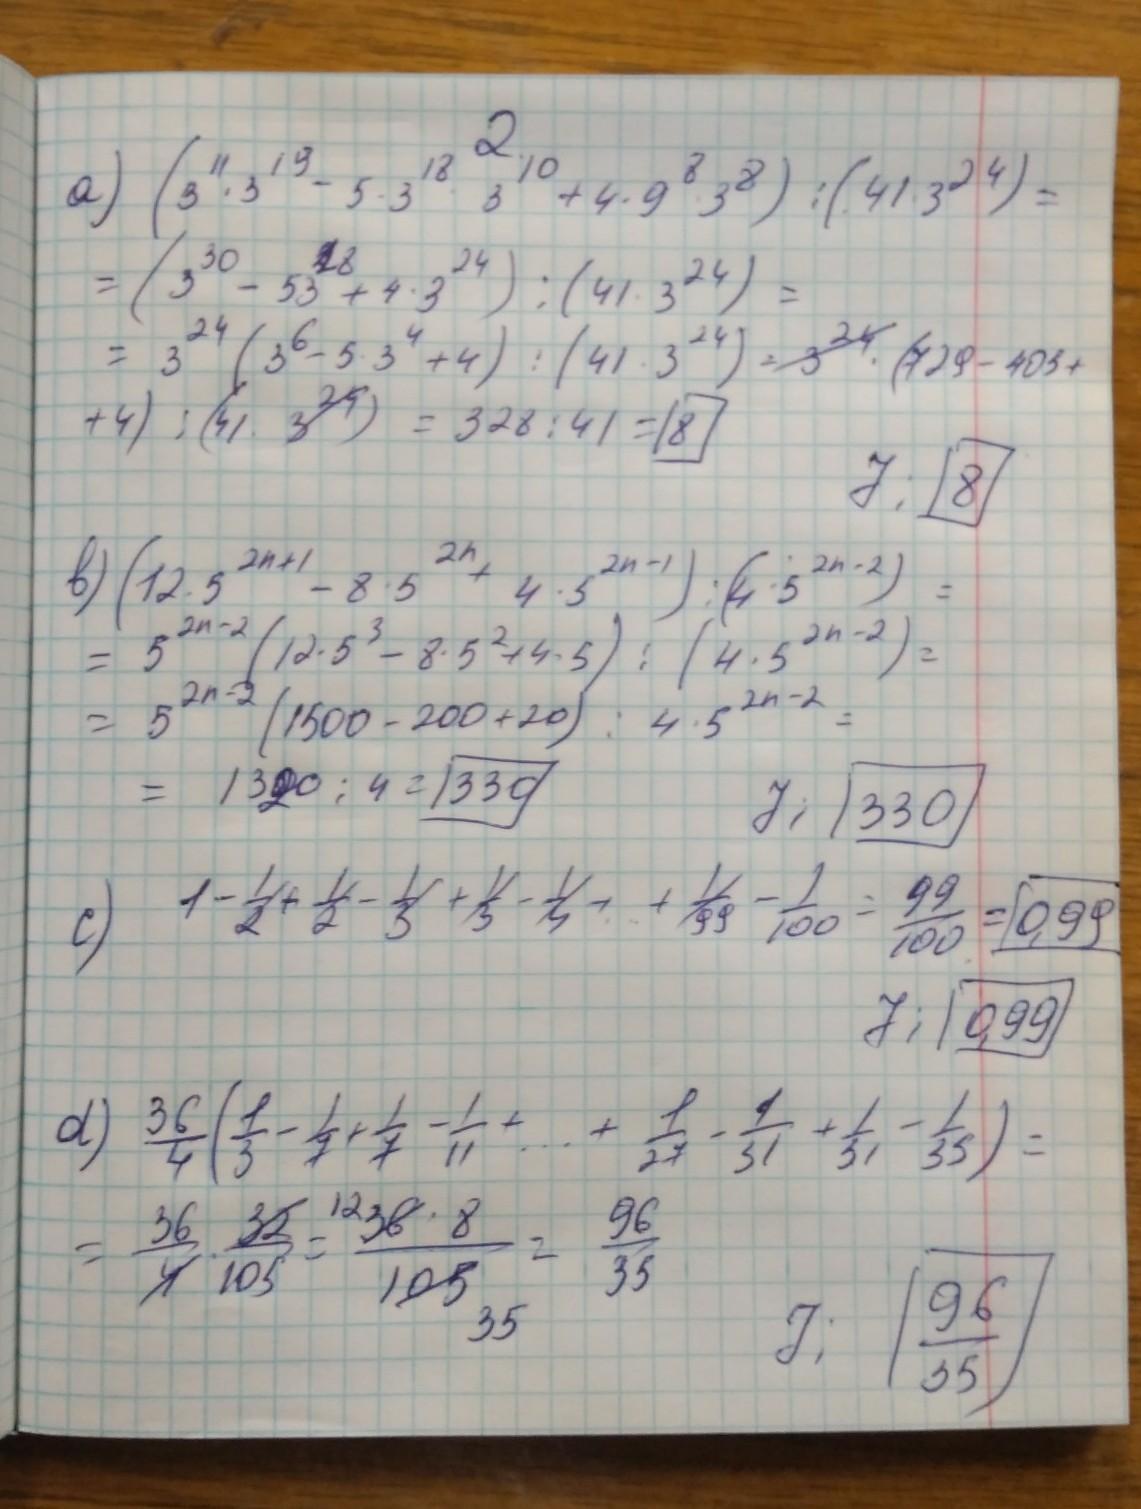 2.
a) (3^11 · 3^19 - 5 · 3^18 · 3^10 + 4 · 9^8 · 3^8) : (41 · 3^24) =
= (3^30 - 53^28 + 4 · 3^24) : (41 · 3^24) =
= 3^24 (3^6 - 5 · 3^4 + 4) : (41 · 3^24) = 3^24 · (729 - 405 +
+ 4) : (41 · 3^24) = 328 : 41 = 8
J: 8
b) (12 · 5^(2n+1) - 8 · 5^(2n) + 4 · 5^(2n-1)) : (4 · 5^(2n-2)) =
= 5^(2n-2) (12 · 5^3 - 8 · 5^2 + 4 · 5) : (4 · 5^(2n-2)) =
= 5^(2n-2) (1500 - 200 + 20) : 4 · 5^(2n-2) =
= 1320 : 4 = 330
J: 330
c) 1 - 1/2 + 1/2 - 1/3 + 1/3 - 1/4 + ... + 1/99 - 1/100 = 99/100 = 0,99
J: 0,99
d) 36/4 (1/3 - 1/7 + 1/7 - 1/11 + ... + 1/27 - 1/31 + 1/31 - 1/35) =
= 36/4 · 32/105 = 12 36 · 8/105 35 = 96/35
J: 96/35